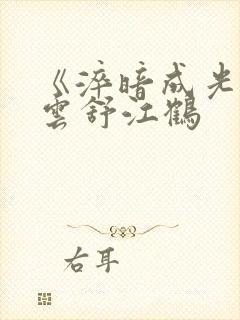 《淬暗成光
雲舒江鶴
右耳